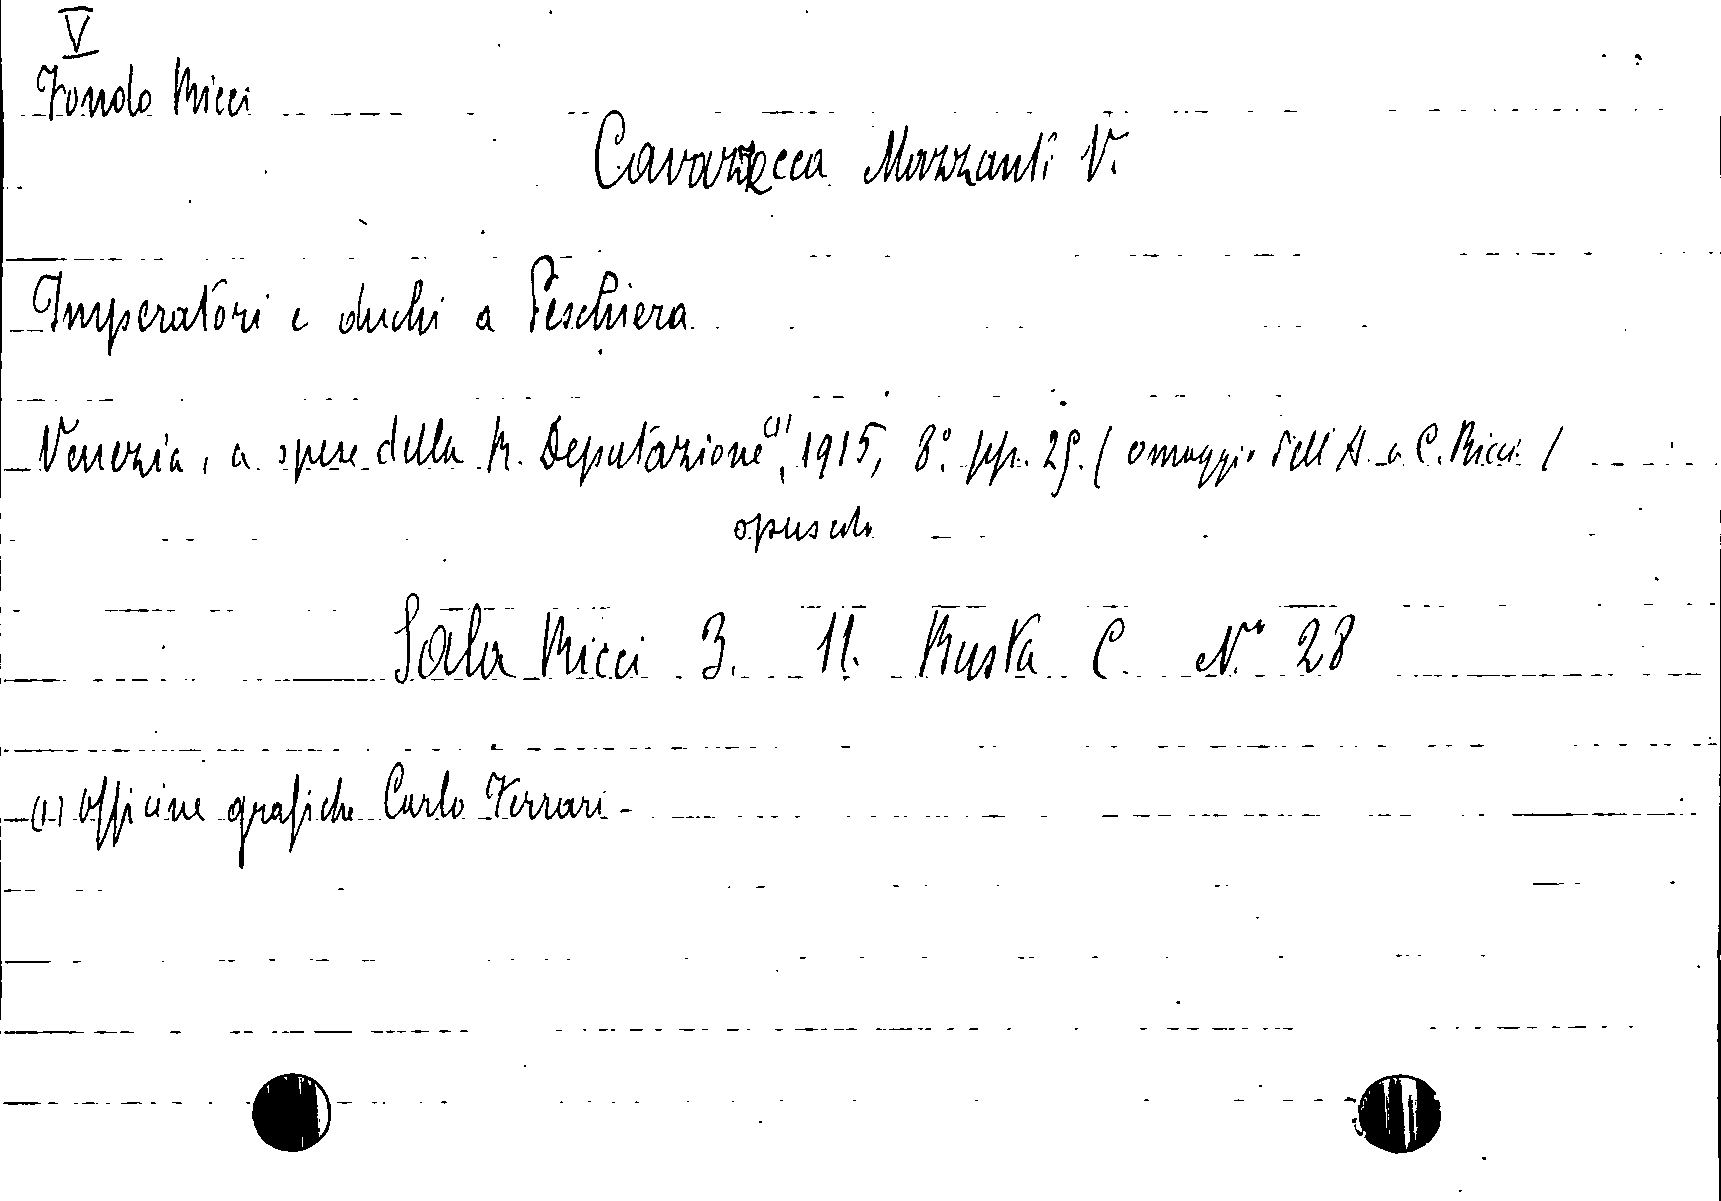 V
Fondo Ricci
Cavazzocca Mazzanti V.
Imperatori e duchi a Peschiera
Venezia, a spese della R. Deputazione (1), 1915, 8° pp. 29. ( omaggio dell'A. a C. Ricci )
opuscolo
Sala Ricci 3. 11. Busta C. N.° 28
(1) Officine grafiche Carlo Ferrari -